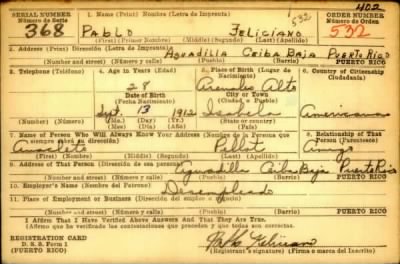 402
SERIAL NUMBER 1. Name (Print) Nombre (Letra de Imprenta) 532 ORDER NUMBER
Número de Serie Número de Orden
368 PABLO FELICIANO 532
(First) (Primer Nombre) (Middle) (Segundo) (Last) (Apellido)
2. Address (Print) Dirección (Letra de Imprenta)
Aguadilla Ceiba Baja Puerto Rico
(Number and street) (Número y calle) (Pueblo) (Barrio) PUERTO RICO
3. Telephone (Teléfono) 4. Age in Years (Edad) 5. Place of Birth (Lugar de Nacimiento) 6. Country of Citizenship Ciudadanía
28 Arenales Alto
Date of Birth City or Town
(Fecha Nacimiento) (Ciudad o Pueblo)
Sept. 13 1912 Isabela Americana
(Number) (Número) (Mo.) (Mes) (Day) (Día) (Yr.) (Año) (State) (Estado)
7. Name of Person Who Will Always Know Your Address (Nombre de la Persona que siempre sabrá su dirección) 8. Relationship of That Person (Parentesco)
Anacleto Pellot Amigo
(First) (Primer) (Middle) (Segundo) (Last) (Apellido)
9. Address of That Person (Dirección de esa persona)
Aguadilla Ceiba Baja Puerto Rico
(Number and street) (Número y calle) (Pueblo) (Barrio) PUERTO RICO
10. Employer's Name (Nombre del Patrono)
Desempleado
11. Place of Employment or Business (Dirección del empleo o negocio)
(Number and street) (Número y calle) (Pueblo) (Barrio) PUERTO RICO
I Affirm That I Have Verified Above Answers And That They Are True.
(Afirmo que he verificado las contestaciones que preceden y que todas son correctas.
REGISTRATION CARD
D. S. S. Form 1 Pablo Feliciano
(Registrant's signature) (Firma o marca del Inscrito)